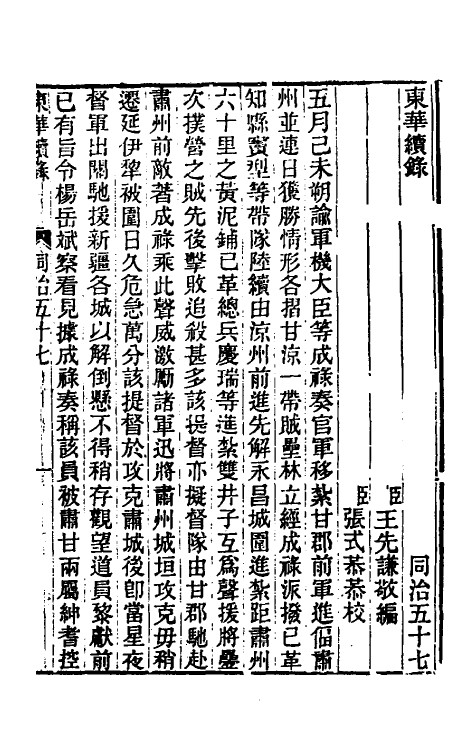 東華續錄 同治五十七
臣王先謙敬編
臣張式恭恭校
五月己未朔諭軍機大臣等成祿奏官軍移紮甘郡前軍進偪肅
州並連日獲勝情形各摺甘涼一帶賊壘林立經成祿派撥已革
知縣竇型等帶隊陸續由涼州前進先解永昌城圍進紮距肅州
六十里之黃泥鋪已革總兵慶瑞等進紮雙井子互爲聲援將疊
次撲營之賊先後擊敗追殺甚多該提督亦擬督隊由甘郡馳赴
肅州前敵著成祿乘此聲威激勵諸軍迅將肅州城垣攻克毋稍
遷延伊犂被圍日久危急萬分該提督於攻克肅城後卽當星夜
督軍出關馳援新疆各城以解倒懸不得稍存觀望道員黎獻前
已有旨令楊岳斌察看見據成祿奏稱該員被肅甘兩屬紳耆控
東華續錄 同治五十七 一